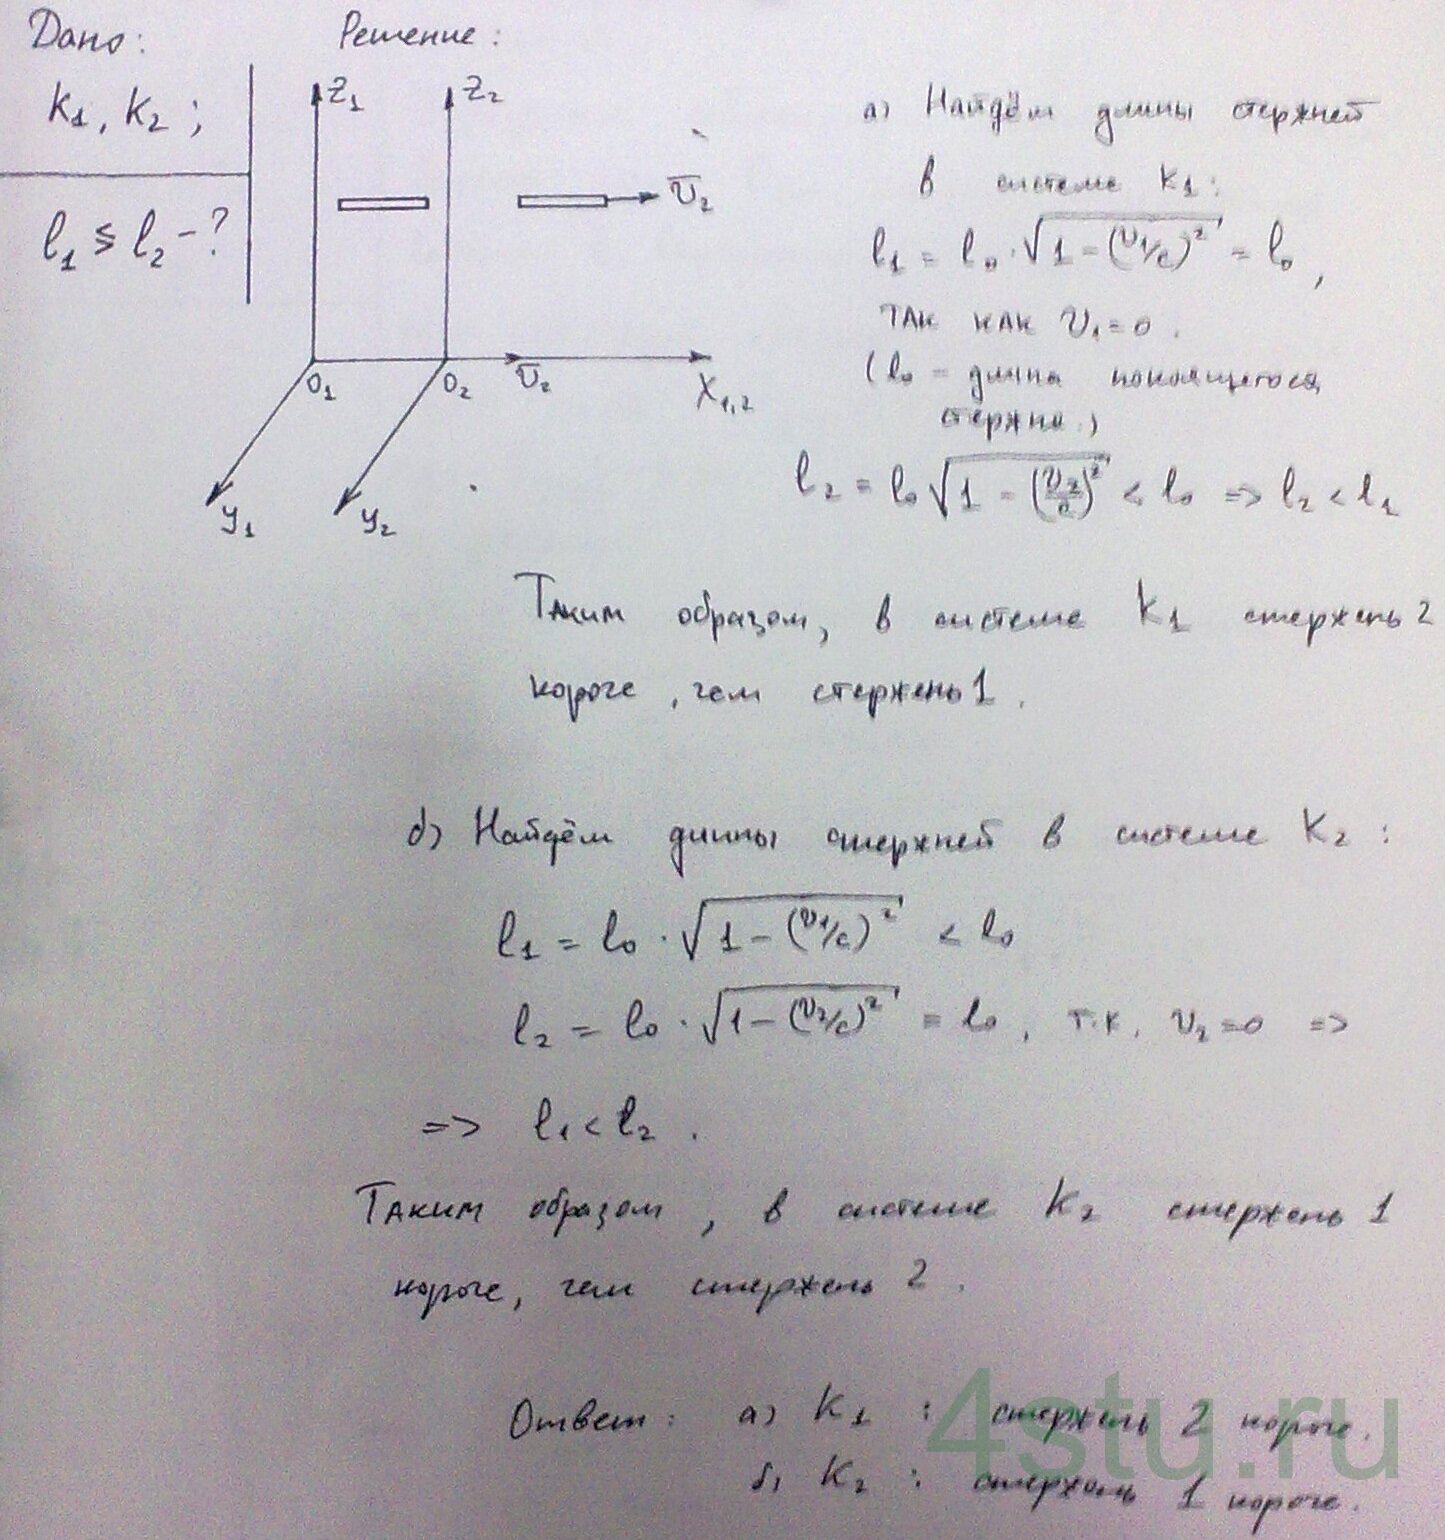 Дано:
K₁, K₂;
l₁ ≶ l₂ - ?
Решение:
Z₁ Z₂
v̄₂
O₁ O₂ v̄₂
X₁,₂
y₁ y₂
а) Найдём длины стержней
в системе K₁:
l₁ = l₀ · √(1 - (v₁/c)²) = l₀,
ТАК КАК v₁ = 0.
(l₀ - длина покоящегося
стержня)
l₂ = l₀ √(1 - (v₂/c)²) < l₀ => l₂ < l₁
Таким образом, в системе K₁ стержень 2
короче, чем стержень 1.
б) Найдём длины стержней в системе K₂:
l₁ = l₀ · √(1 - (v₁/c)²) < l₀
l₂ = l₀ · √(1 - (v₂/c)²) = l₀, т.к. v₂ = 0 =>
=> l₁ < l₂.
Таким образом, в системе K₂ стержень 1
короче, чем стержень 2.
Ответ: а) K₁: стержень 2 короче.
б) K₂: стержень 1 короче.
4stu.ru